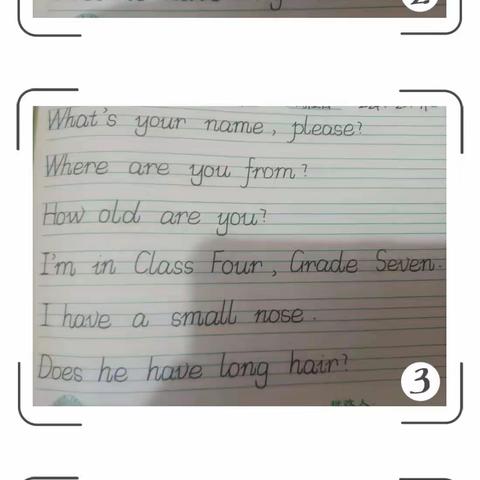 What's your name, please?
Where are you from?
How old are you?
I'm in Class Four, Grade Seven.
I have a small nose.
Does he have long hair?
3